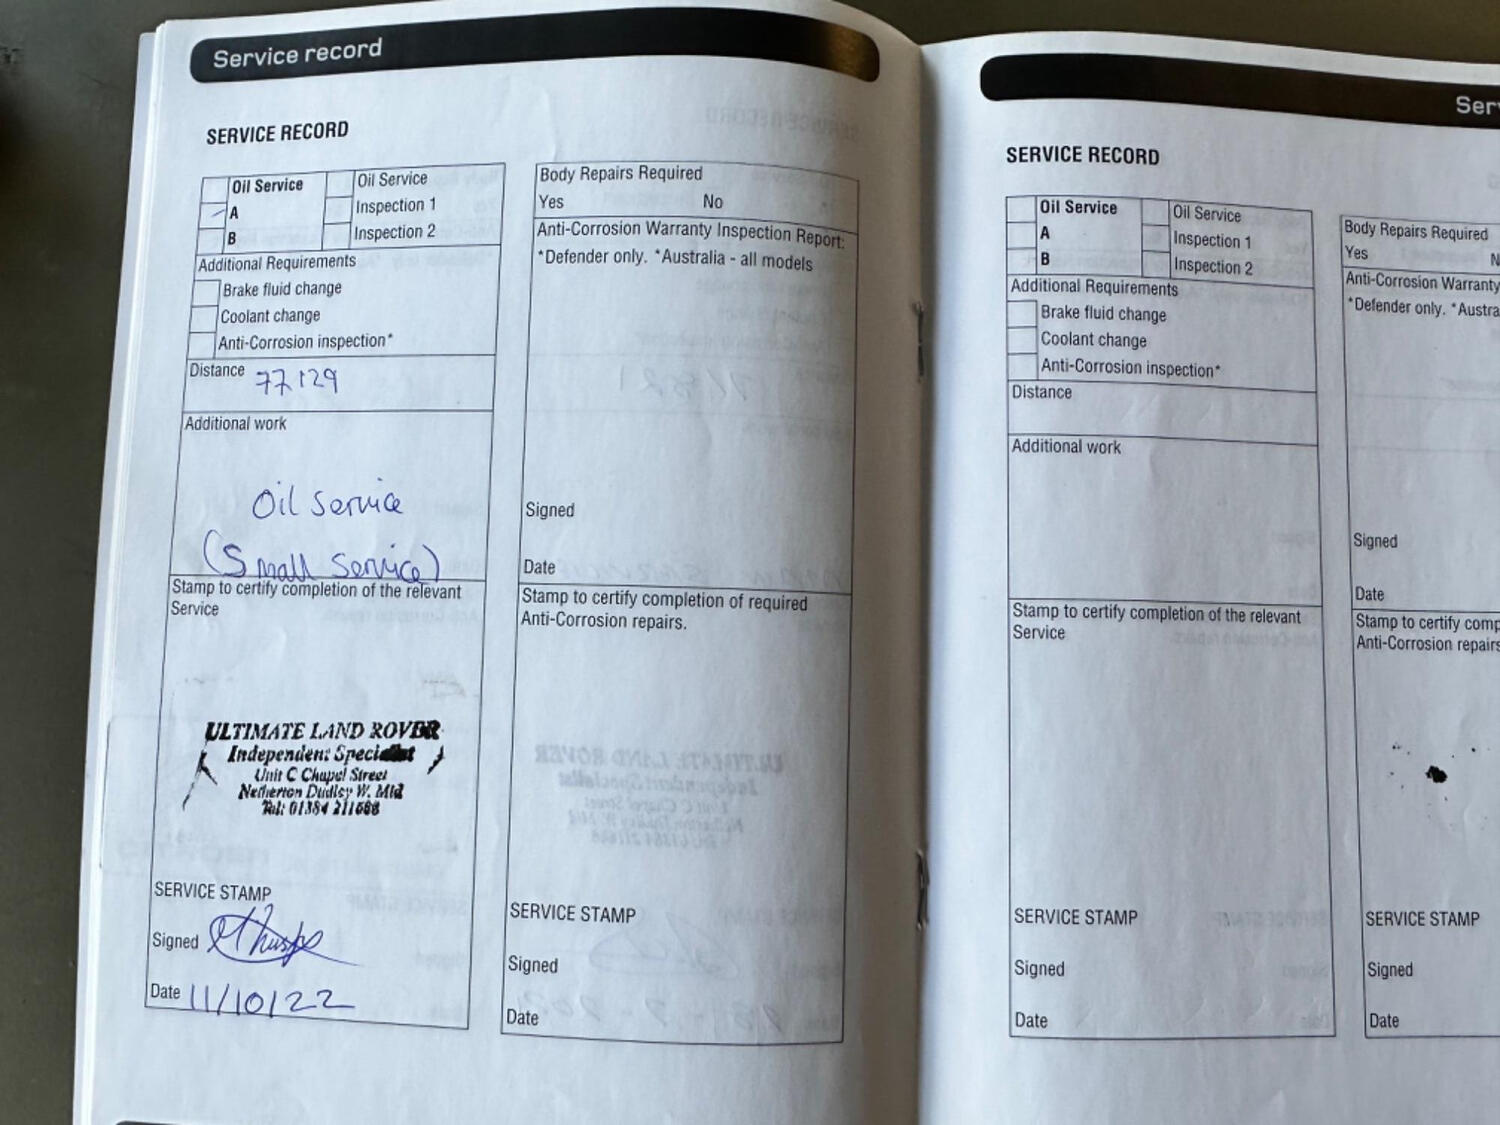 Service record
SERVICE RECORD
Oil Service
A
B
Oil Service
Inspection 1
Inspection 2
Additional Requirements
Brake fluid change
Coolant change
Anti-Corrosion inspection*
Distance 77129
Additional work
Oil Service
(Small Service)
Stamp to certify completion of the relevant
Service
ULTIMATE LAND ROVER
Independent Specialist
Unit C Chapel Street
Netherton Dudley W. Mid
Tel: 01384 211688
SERVICE STAMP
Signed
Date 11/10/22
Body Repairs Required
Yes No
Anti-Corrosion Warranty Inspection Report:
*Defender only. *Australia - all models
Signed
Date
Stamp to certify completion of required
Anti-Corrosion repairs.
SERVICE STAMP
Signed
Date
Ser
SERVICE RECORD
Oil Service
A
B
Oil Service
Inspection 1
Inspection 2
Additional Requirements
Brake fluid change
Coolant change
Anti-Corrosion inspection*
Distance
Additional work
Stamp to certify completion of the relevant
Service
SERVICE STAMP
Signed
Date
Body Repairs Required
Yes N
Anti-Corrosion Warranty
*Defender only. *Austra
Signed
Date
Stamp to certify comp
Anti-Corrosion repairs
SERVICE STAMP
Signed
Date